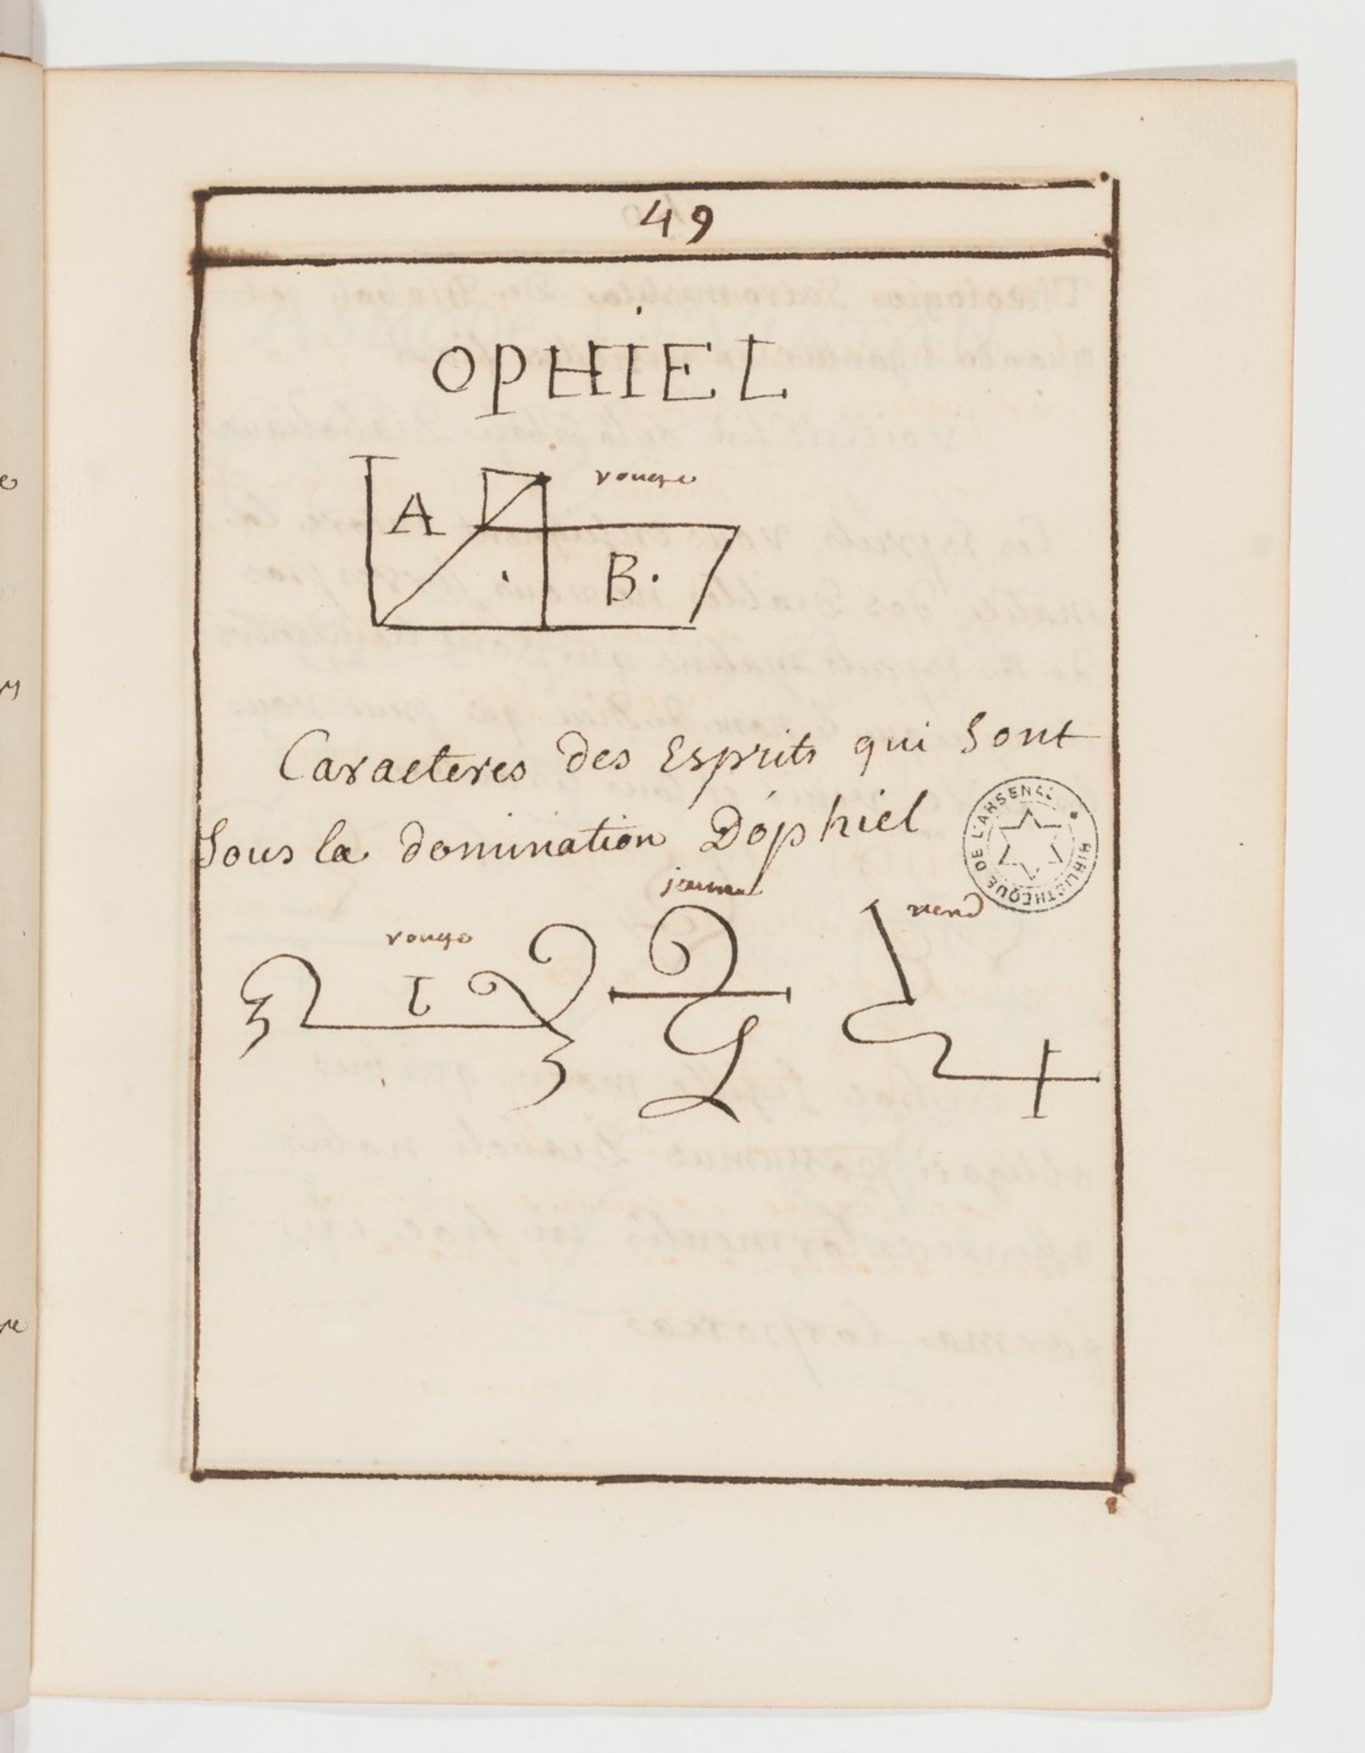 49
OPHIEL
rouge
A
B.
Caracteres des Esprits qui sont
sous la domination D'ophiel
BIBLIOTHEQUE DE L'ARSENAL
jaune
rouge
verd